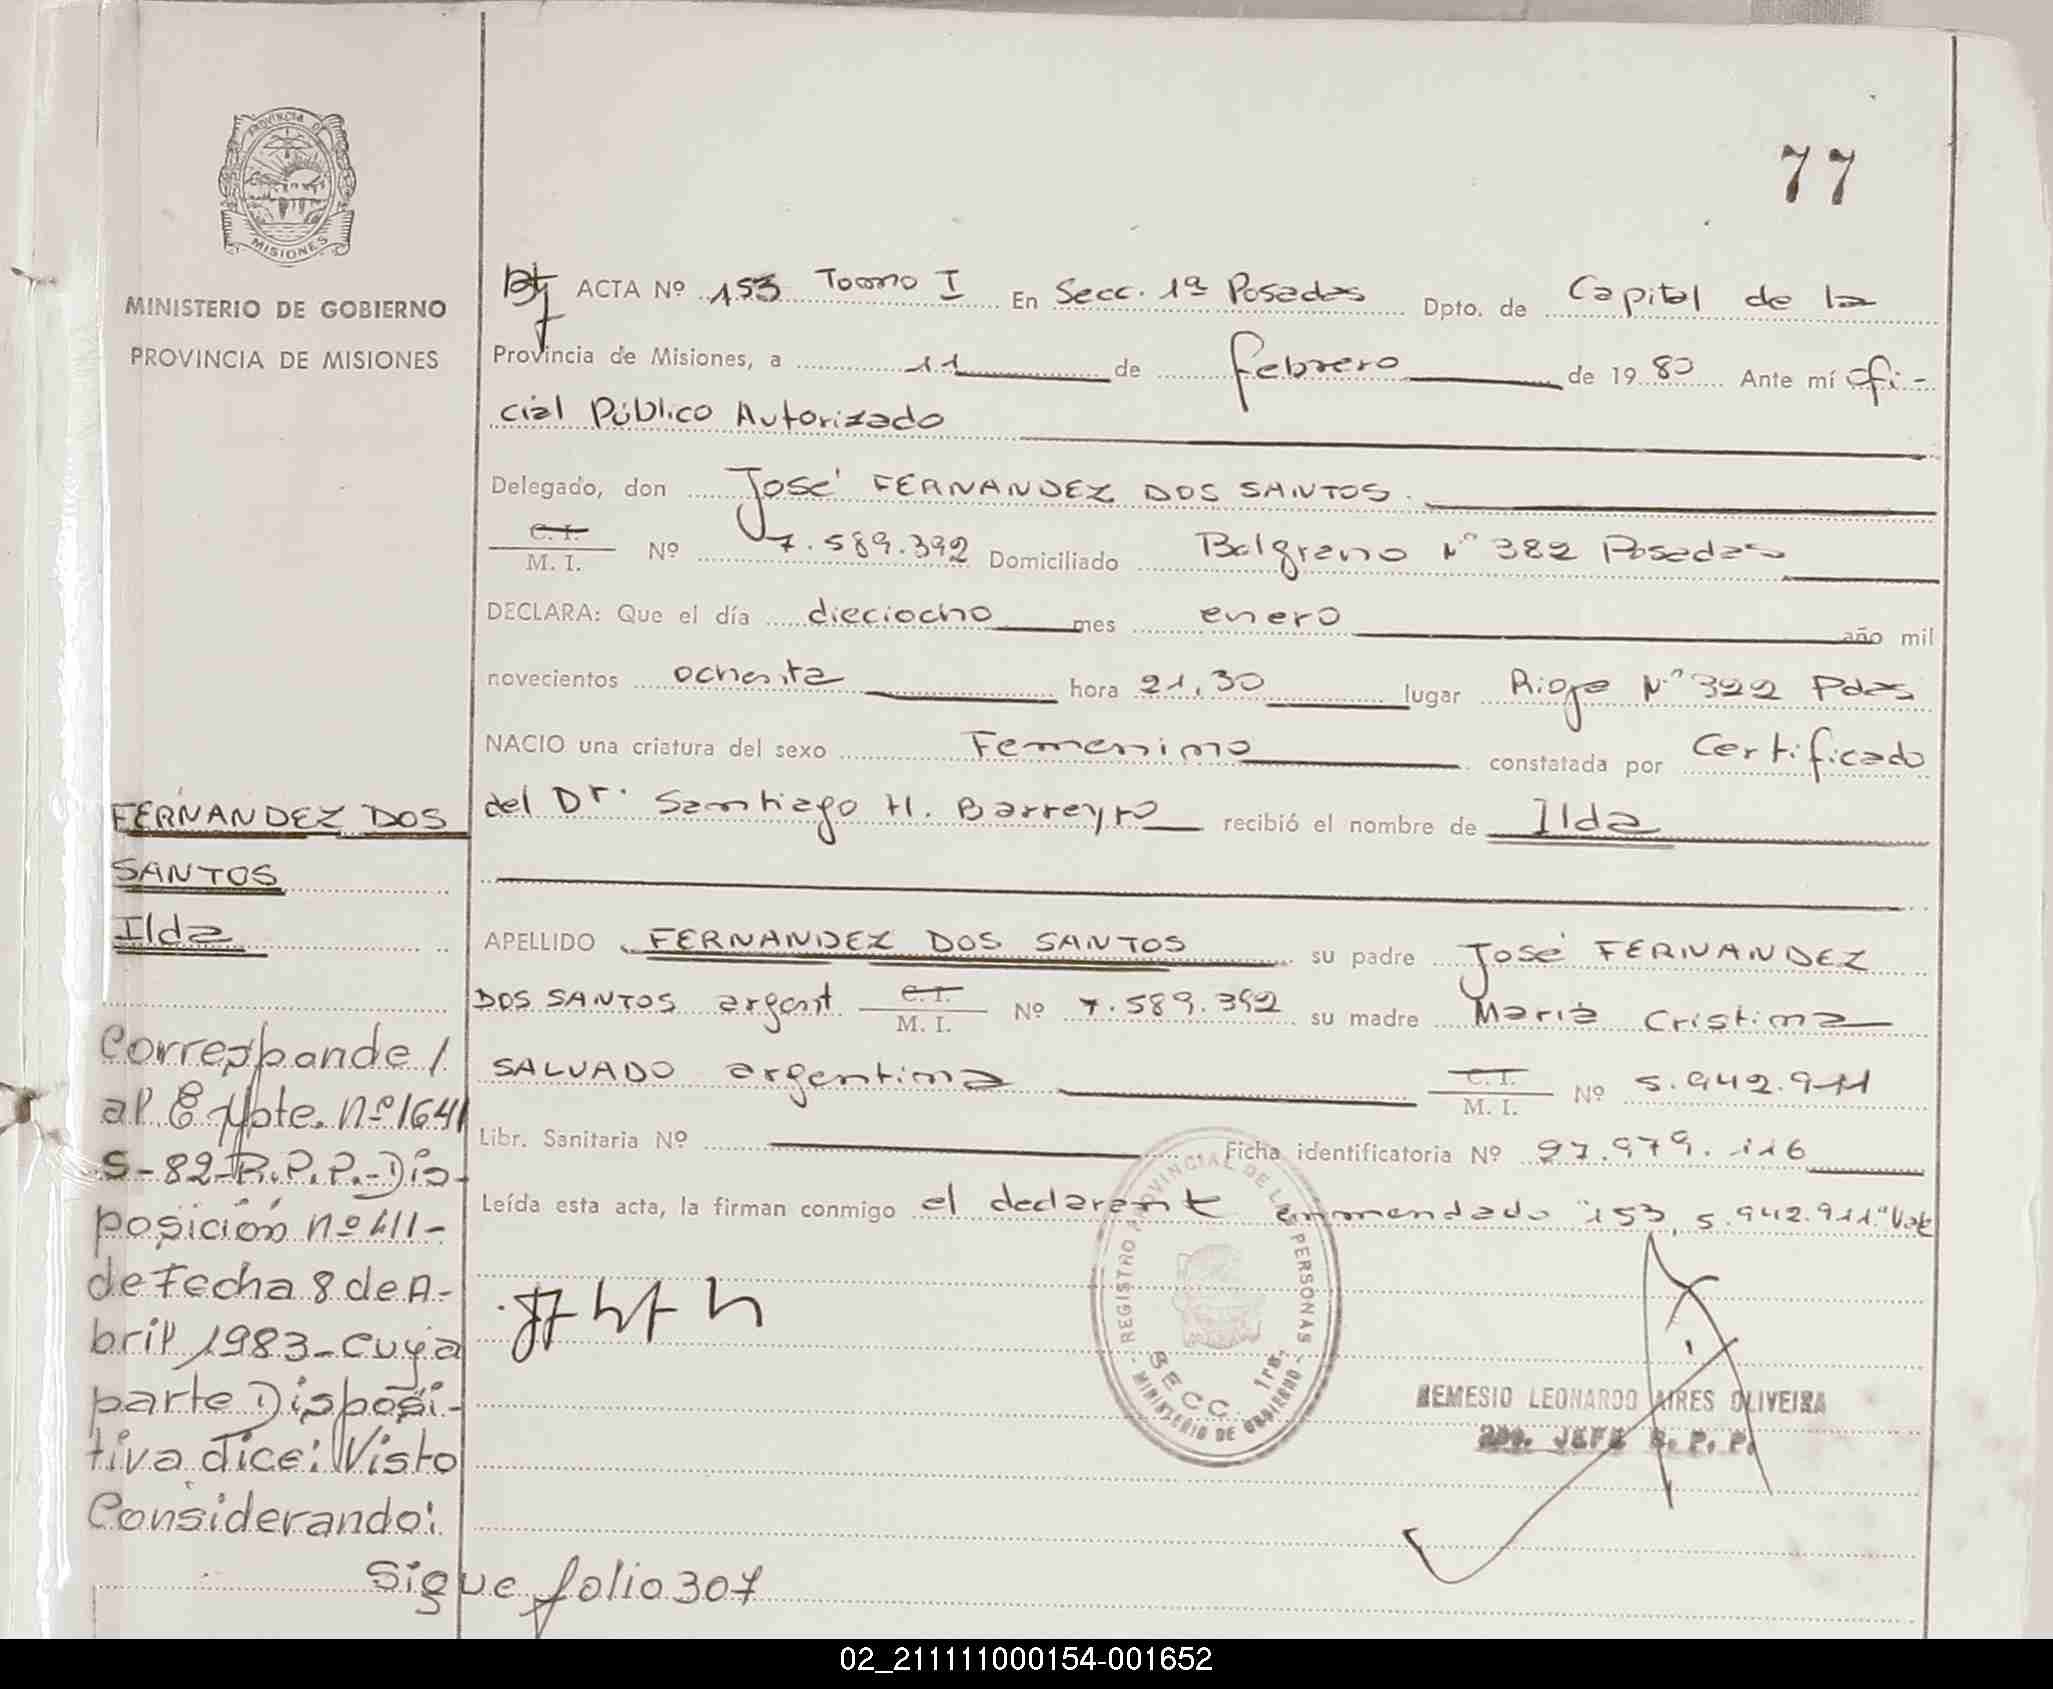 77
PROVINCIA DE
MISIONES
MINISTERIO DE GOBIERNO
PROVINCIA DE MISIONES
ACTA Nº 153 Tomo I En Secc. 1ª Posadas Dpto. de Capital de la
Provincia de Misiones, a 11 de febrero de 1980 Ante mí ofi-
cial Público Autorizado
Delegado, don José FERNANDEZ DOS SANTOS.
C. I.
M. I. Nº 7.589.392 Domiciliado Belgrano Nº 382 Posadas
DECLARA: Que el día dieciocho mes enero año mil
novecientos ochenta hora 21,30 lugar Rioja Nº 322 Pdas
NACIO una criatura del sexo Femenino constatada por Certificado
del Dr. Santiago H. Barreyro recibió el nombre de Ilda
APELLIDO FERNANDEZ DOS SANTOS su padre José FERNANDEZ
DOS SANTOS argent C. I. M. I. Nº 7.589.392 su madre Maria Cristina
SALVADO argentina C. I. M. I. Nº 5.942.911
Libr. Sanitaria Nº Ficha identificatoria Nº 27.979.116
Leída esta acta, la firman conmigo el declarant enmendado "153, 5.942.911" Vale
REGISTRO PROVINCIAL DE LAS PERSONAS
SECC. 1ra.
- MINISTERIO DE GOBIERNO -
NEMESIO LEONARDO AIRES OLIVEIRA
2do. JEFE R. P. P.
FERNANDEZ DOS
SANTOS
Ilda
Corresponde /
al Expte. Nº 1641
S-82-R.P.P.-Dis-
posición nº 411-
de Fecha 8 de A-
bril 1983-cuya
parte Disposi-
tiva dice: Visto
Considerando:
Sigue folio 307
02_211111000154-001652